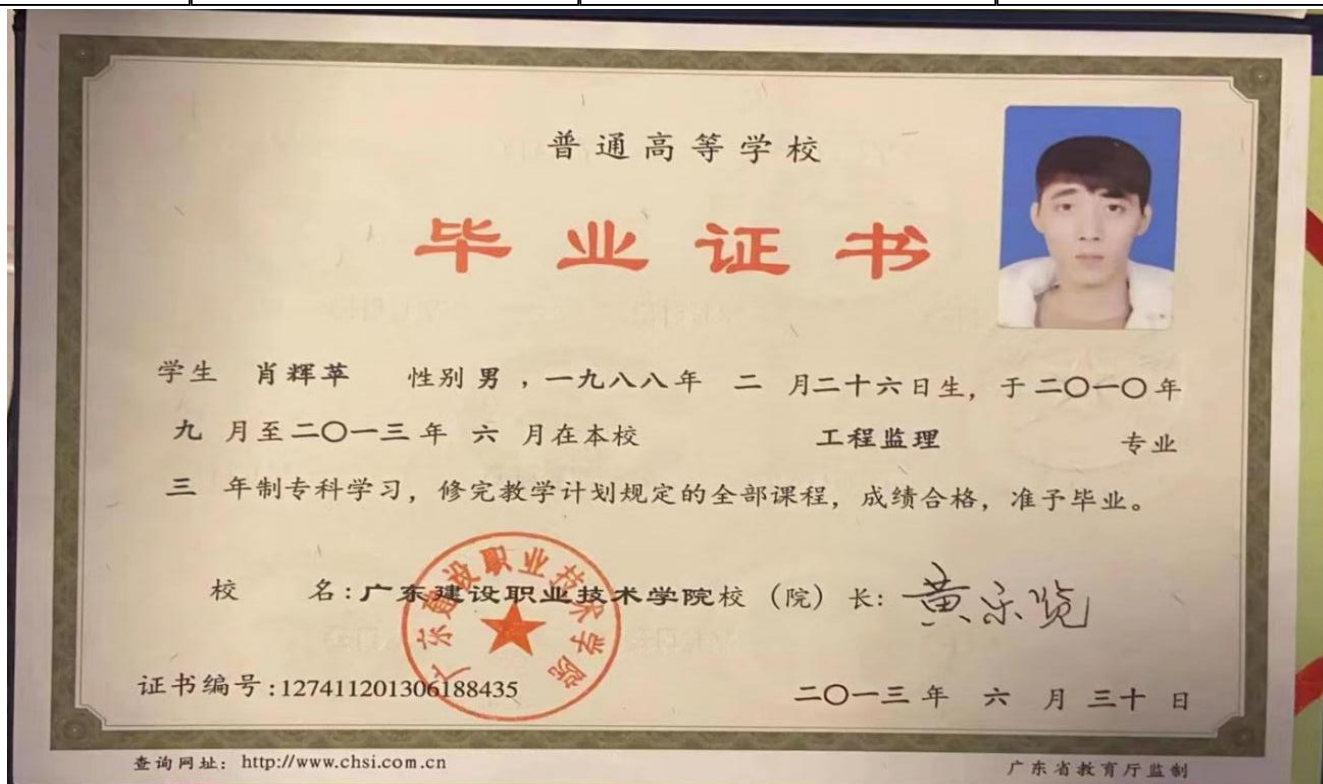 普通高等学校
毕业证书
学生 肖辉苹 性别 男 ，一九八八年 二 月二十六日生，于二〇一〇年
九 月至二〇一三年 六 月在本校 工程监理 专业
三 年制专科学习，修完教学计划规定的全部课程，成绩合格，准予毕业。
校 名：广东建设职业技术学院校（院）长：
广东建设职业技术学院
证书编号:127411201306188435 二〇一三年 六 月 三十 日
查询网址：http://www.chsi.com.cn 广东省教育厅监制